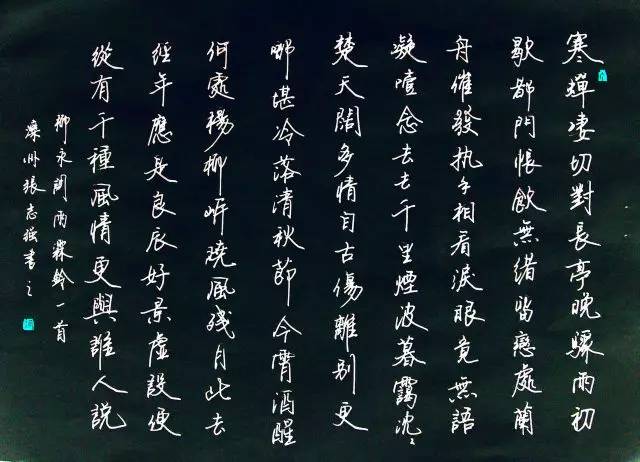 寒蟬凄切對長亭晚驟雨初
歇都門悵飲無緒留戀處蘭
舟催發执手相看淚眼竟無語
凝噎念去去千里煙波暮靄沈〻
楚天闊多情自古傷離别更
哪堪冷落清秋節今宵酒醒
何處楊柳岍曉風残月此去
經年應是良辰好景虛設便
從有千種風情更與誰人說
柳永闋雨霖鈴一首
灤州張志强書之